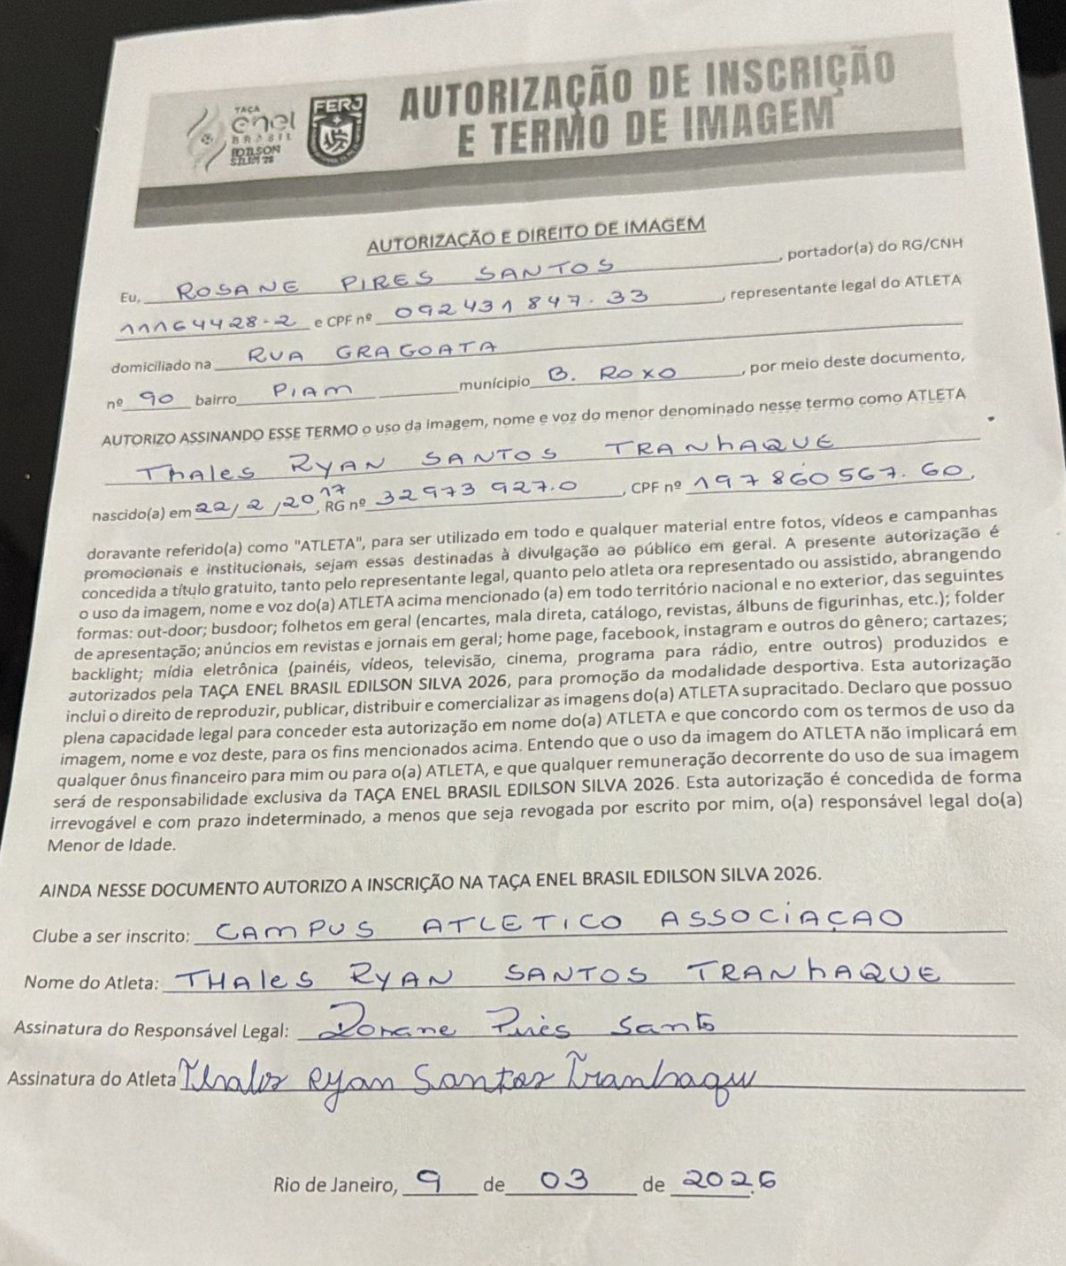 TAÇA
enel
BRASIL
EDILSON
SILVA 26
FERJ
AUTORIZAÇÃO DE INSCRIÇÃO
E TERMO DE IMAGEM
AUTORIZAÇÃO E DIREITO DE IMAGEM
Eu, ROSANE PIRES SANTOS, portador(a) do RG/CNH
11164428-2 e CPF nº 092431847.33, representante legal do ATLETA
domiciliado na RUA GRAGOATA
nº 90 bairro PIAM município B. ROXO, por meio deste documento,
AUTORIZO ASSINANDO ESSE TERMO o uso da imagem, nome e voz do menor denominado nesse termo como ATLETA
Thales RYAN SANTOS TRANhAQUE
nascido(a) em 22/2/2017, RG nº 32973927.0, CPF nº 197860567.60,
doravante referido(a) como "ATLETA", para ser utilizado em todo e qualquer material entre fotos, vídeos e campanhas
promocionais e institucionais, sejam essas destinadas à divulgação ao público em geral. A presente autorização é
concedida a título gratuito, tanto pelo representante legal, quanto pelo atleta ora representado ou assistido, abrangendo
o uso da imagem, nome e voz do(a) ATLETA acima mencionado (a) em todo território nacional e no exterior, das seguintes
formas: out-door; busdoor; folhetos em geral (encartes, mala direta, catálogo, revistas, álbuns de figurinhas, etc.); folder
de apresentação; anúncios em revistas e jornais em geral; home page, facebook, instagram e outros do gênero; cartazes;
backlight; mídia eletrônica (painéis, vídeos, televisão, cinema, programa para rádio, entre outros) produzidos e
autorizados pela TAÇA ENEL BRASIL EDILSON SILVA 2026, para promoção da modalidade desportiva. Esta autorização
inclui o direito de reproduzir, publicar, distribuir e comercializar as imagens do(a) ATLETA supracitado. Declaro que possuo
plena capacidade legal para conceder esta autorização em nome do(a) ATLETA e que concordo com os termos de uso da
imagem, nome e voz deste, para os fins mencionados acima. Entendo que o uso da imagem do ATLETA não implicará em
qualquer ônus financeiro para mim ou para o(a) ATLETA, e que qualquer remuneração decorrente do uso de sua imagem
será de responsabilidade exclusiva da TAÇA ENEL BRASIL EDILSON SILVA 2026. Esta autorização é concedida de forma
irrevogável e com prazo indeterminado, a menos que seja revogada por escrito por mim, o(a) responsável legal do(a)
Menor de Idade.
AINDA NESSE DOCUMENTO AUTORIZO A INSCRIÇÃO NA TAÇA ENEL BRASIL EDILSON SILVA 2026.
Clube a ser inscrito: CAMPUS ATLETICO ASSOCIAÇAO
Nome do Atleta: THAles RYAN SANTOS TRANhAQUE
Assinatura do Responsável Legal: Rosane Pires Santos
Assinatura do Atleta Thales Ryan Santos Tranhaqu
Rio de Janeiro, 9 de 03 de 2026.